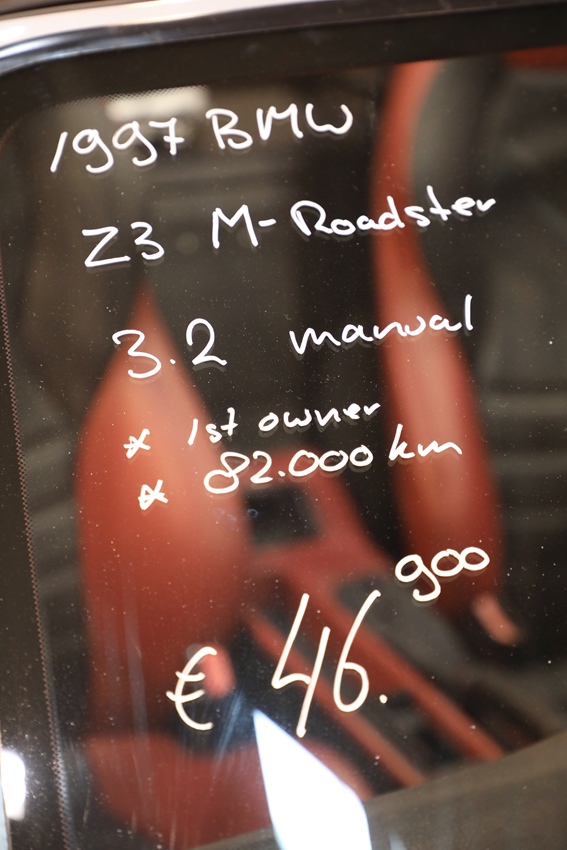 1997 BMW
Z3 M-Roadster
3.2 manual
* 1st owner
* 82.000 km
€ 46.900